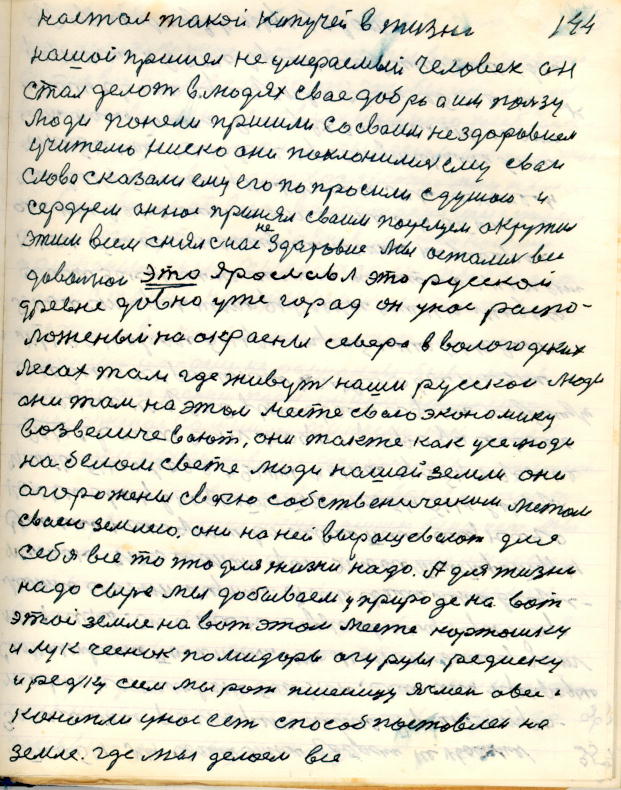 настал такой случай в жизни 144
нашой пришел не умераемый человек он
стал делат в людях свае добро а им ползу
люди понели пришли со сваим нездоровием
учителю ниско они поклонилис ему сваи
слова сказали ему его попросили с душою и
сердцем он нас принял сваим поцелуем окружил
этим всем снял с нас не здаровие мы осталис все
доволнаи Это Ярославл это русской
древне довно уже горад он у нас распо-
ложеный на окраены севера в вологодских
лесах там где живут наши русскои люди
они там на этом месте сваю экономику
возвеличевают, они также как усе люди
на белом свете люди нашай земли они
огорожены сваею собственическим местом
сваею землею. они на ней выращевают для
себя все то што для жизни надо. А для жизни
надо сыре мы добываем у природе на вот
этой земле на вот этом месте картошку
и лук чеснок помидоры огурцы редиску
и редку сеим мы рож пшеницу ячмен овес.
канопли у нас ест способ поставлен на
земле. где мы делаем все